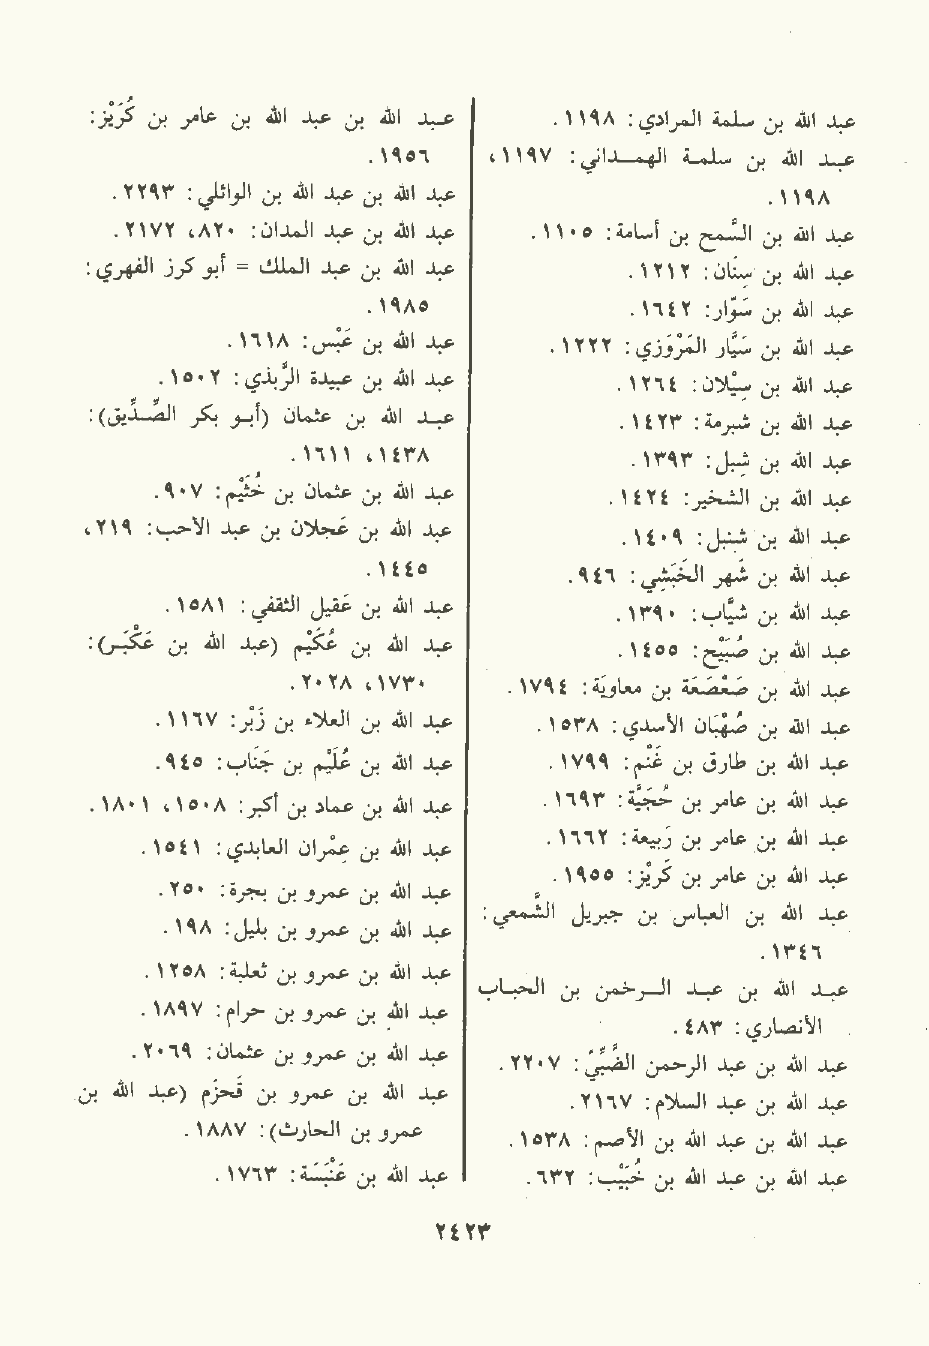 عبد الله بن سلمة المرادي: ١١٩٨.
عبد الله بن سلمة الهمداني: ١١٩٧،
١١٩٨.
عبد الله بن السَّمح بن أسامة: ١١٠٥.
عبد الله بن سِنَان: ١٢١٢.
عبد الله بن سَوّار: ١٦٤٢.
عبد الله بن سَيَّار المَرْوَزي: ١٢٢٢.
عبد الله بن سِيْلان: ١٢٦٤.
عبد الله بن شبرمة: ١٤٢٣.
عبد الله بن شِبل: ١٣٩٣.
عبد الله بن الشخير: ١٤٢٤.
عبد الله بن شنبل: ١٤٠٩.
عبد الله بن شَهر الخَبَشِي: ٩٤٦.
عبد الله بن شيَّاب: ١٣٩٠.
عبد الله بن صُبَيْح: ١٤٥٥.
عبد الله بن صَعْصَعَة بن معاويَة: ١٧٩٤.
عبد الله بن صُهْبَان الأسدي: ١٥٣٨.
عبد الله بن طارق بن غَنْم: ١٧٩٩.
عبد الله بن عامر بن حُجَيَّة: ١٦٩٣.
عبد الله بن عامر بن رَبيعة: ١٦٦٢.
عبد الله بن عامر بن كَرِيْز: ١٩٥٥.
عبد الله بن العباس بن جبريل الشَّمعي:
١٣٤٦.
عبد الله بن عبد الرحمن بن الحباب
الأنصاري: ٤٨٣.
عبد الله بن عبد الرحمن الضَّبِّيّ: ٢٢٠٧.
عبد الله بن عبد السلام: ٢١٦٧.
عبد الله بن عبد الله بن الأصم: ١٥٣٨.
عبد الله بن عبد الله بن خُبَيْب: ٦٣٢.
عبد الله بن عبد الله بن عامر بن كُرَيْز:
١٩٥٦.
عبد الله بن عبد الله بن الوائلي: ٢٢٩٣.
عبد الله بن عبد المدان: ٨٢٠، ٢١٧٢.
عبد الله بن عبد الملك = أبو كرز الفهري:
١٩٨٥.
عبد الله بن عَبْس: ١٦١٨.
عبد الله بن عبيدة الرَّبذي: ١٥٠٢.
عبد الله بن عثمان (أبو بكر الصِّدِّيق):
١٤٣٨، ١٦١١.
عبد الله بن عثمان بن خُثَيْم: ٩٠٧.
عبد الله بن عَجلان بن عبد الأحب: ٢١٩،
١٤٤٥.
عبد الله بن عَقيل الثقفي: ١٥٨١.
عبد الله بن عُكَيْم (عبد الله بن عَكْبَر):
١٧٣٠، ٢٠٢٨.
عبد الله بن العلاء بن زَبْر: ١١٦٧.
عبد الله بن عُلَيْم بن جَنَاب: ٩٤٥.
عبد الله بن عماد بن أكبر: ١٥٠٨، ١٨٠١.
عبد الله بن عِمْران العابدي: ١٥٤١.
عبد الله بن عمرو بن بجرة: ٢٥٠.
عبد الله بن عمرو بن بليل: ١٩٨.
عبد الله بن عمرو بن ثعلبة: ١٢٥٨.
عبد الله بن عمرو بن حرام: ١٨٩٧.
عبد الله بن عمرو بن عثمان: ٢٠٦٩.
عبد الله بن عمرو بن قَحزَم (عبد الله بن
عمرو بن الحارث): ١٨٨٧.
عبد الله بن عَنْبَسَة: ١٧٦٣.
٢٤٢٣